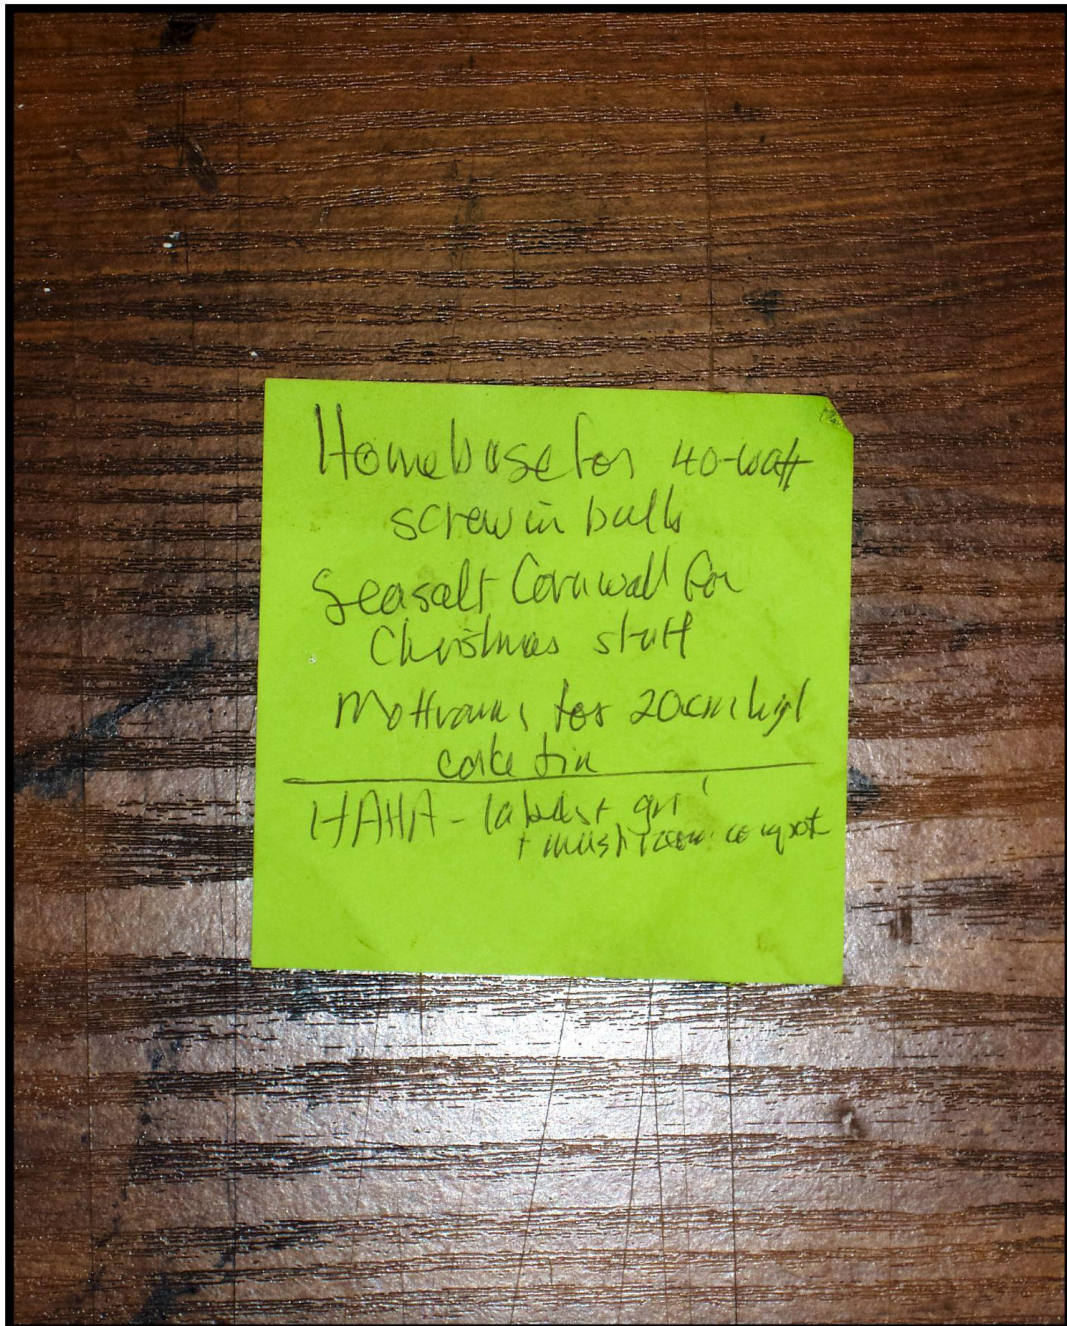 Homebase for 40-watt
screw in bulbs
Seasalt Cornwall for
Christmas stuff
for 20cm high
cake tin
HAHA - labels +
+ mushroom compost